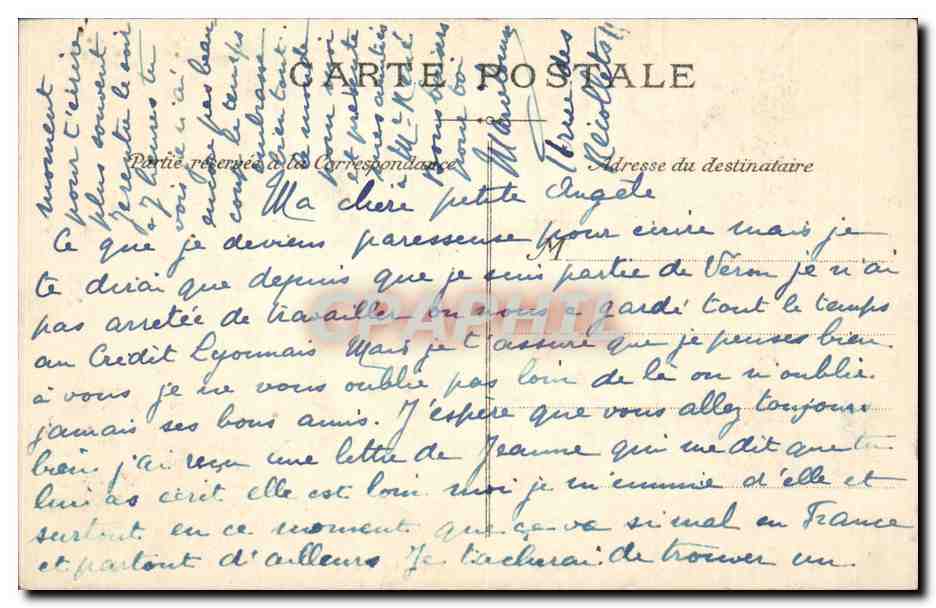 CARTE POSTALE
Partie réservée à la Correspondance
Adresse du destinataire
M
Ma chère petite Angèle
Ce que je deviens paresseuse pour écrire mais je
te dirai que depuis que je suis partie de Véron je n'ai
pas arrêtée de travailler on nous a gardé tout le temps
au Crédit Lyonnais Mais je t'assure que je penses bien
à vous je ne vous oublie pas loin de là on n'oublie
jamais ses bons amis. J'espère que vous allez toujours
bien j'ai reçu une lettre de Jeanne qui me dit que tu
lui as écrit elle est loin moi je m'ennuie d'elle et
surtout en ce moment que ça va si mal en France
et partout d'ailleurs Je tacherai de trouver un
moment
pour t'écrire
plus souvent
Je rentre le soir
à 7 heures tu
vois je n'ai
encore pas beau
coup le temps
embrasse
bien tout
le monde
pour moi
et présente
mes amitiés
à Mme
bons baisers
pour toi
Marcelle
rue des
GRAPHIL